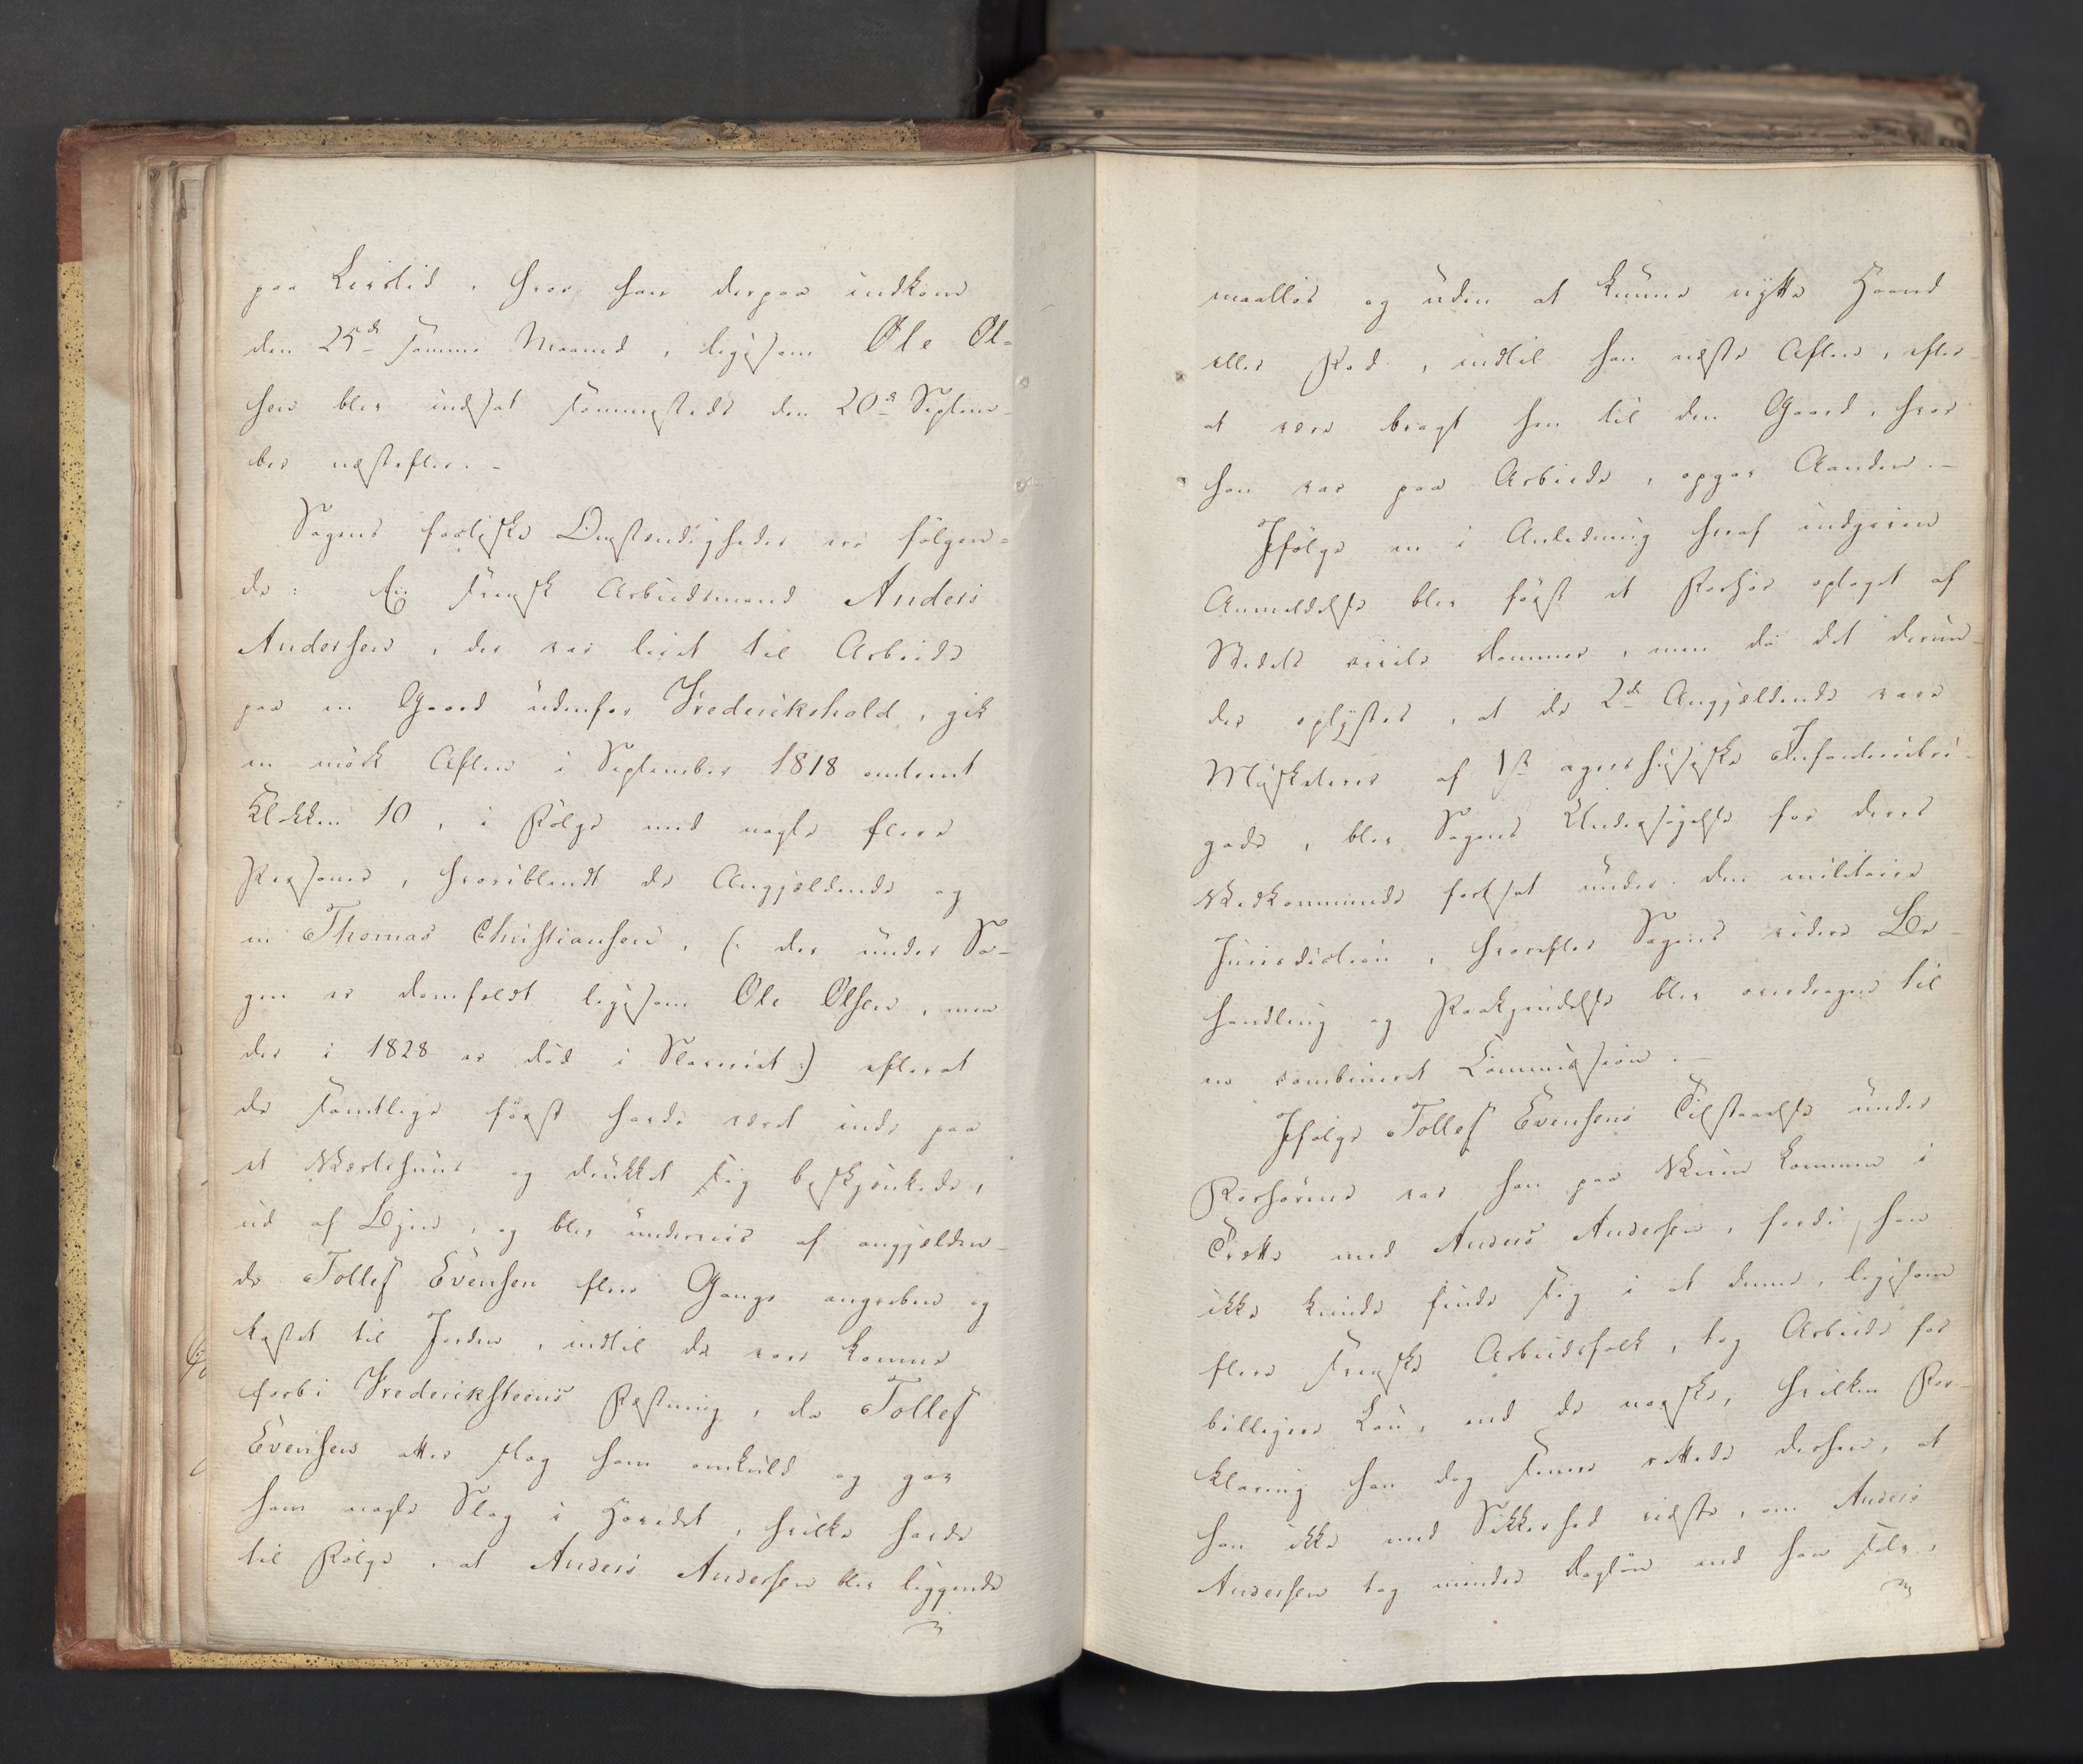 paa Livstid, hvor han derpaa indkom
den 25de samme Maaned, ligesom Ole Ol=
sen blev indsat sammesteds den 20de Septem-
ber næstefter. -
Sagens factiske Omstændigheder ere følgen=
de: En svensk Arbeidsmand Anders
Andersen, der var leiet til Arbeide
paa en Gaard udenfor Frederikshald, gik
en mørk Aften i September 1818 omtrent
Klokken 10, i Følge med nogle flere
Personer, hvoriblandt de Angjældende og
en Thomas Christiansen, (: der under Sa-
gen er domfældt ligesom Ole Olsen, men
der i 1828 er død i Slaveriet :) efterat
de samtlige først havde været inde paa
et Værtshuus og drukket sig beskjænkede,
ud af Byen, og blev underveis af angjælden-
de Tollef Evensen flere Gange angreben og
kastet til Jorden, indtil de vare komne
forbi Frederiksteens Fæstning, da Tollef
Evensen atter slog ham omkuld og gav
ham nogle Slag i Hovedet, hvilke havde
til Følge, at Anders Andersen blev liggende
maalløs og uden at kunne nytte Haand
eller Fod, indtil han næste Aften, efter
at være bragt hen til den Gaard, hvor
han var paa Arbeide, opgav Aanden. -
Ifølge en i Anledning heraf indgiven
Anmeldelse blev først et Forhør optaget af
Stedets civile Dommer, men da det derun-
der oplystes, at de 2de Angjældende vare
Musketerer af 1ste agershusiske Infanteribri-
gade, blev Sagens Undersøgelse for deres
Vedkommende fortsat under den militaire
Jurisdiction, hvorefter Sagens videre Be-
handling og Paakjendelse blev overdragen til
en combineret Commission. -
Ifølge Tollef Evensens Tilstaaelse under
Forhørene var han paa Veien kommen i
Trætte med Anders Andersen, fordi han
ikke kunde finde sig i at denne, ligesom
flere svenske Arbeidsfolk, tog Arbeide for
billigere Løn, end de norske, hvilken For-
klaring han dog senere rettede derhen, at
han ikke med Sikkerhed vidste, om Anders
Andersen tog mindre Dagløn end han selv,